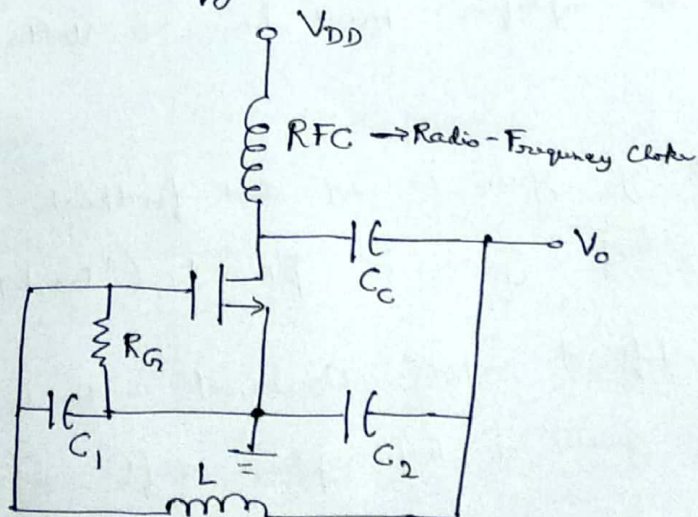 V_DD
RFC → Radio-Frequency Choke
V_o
C_C
R_G
C_1
C_2
L